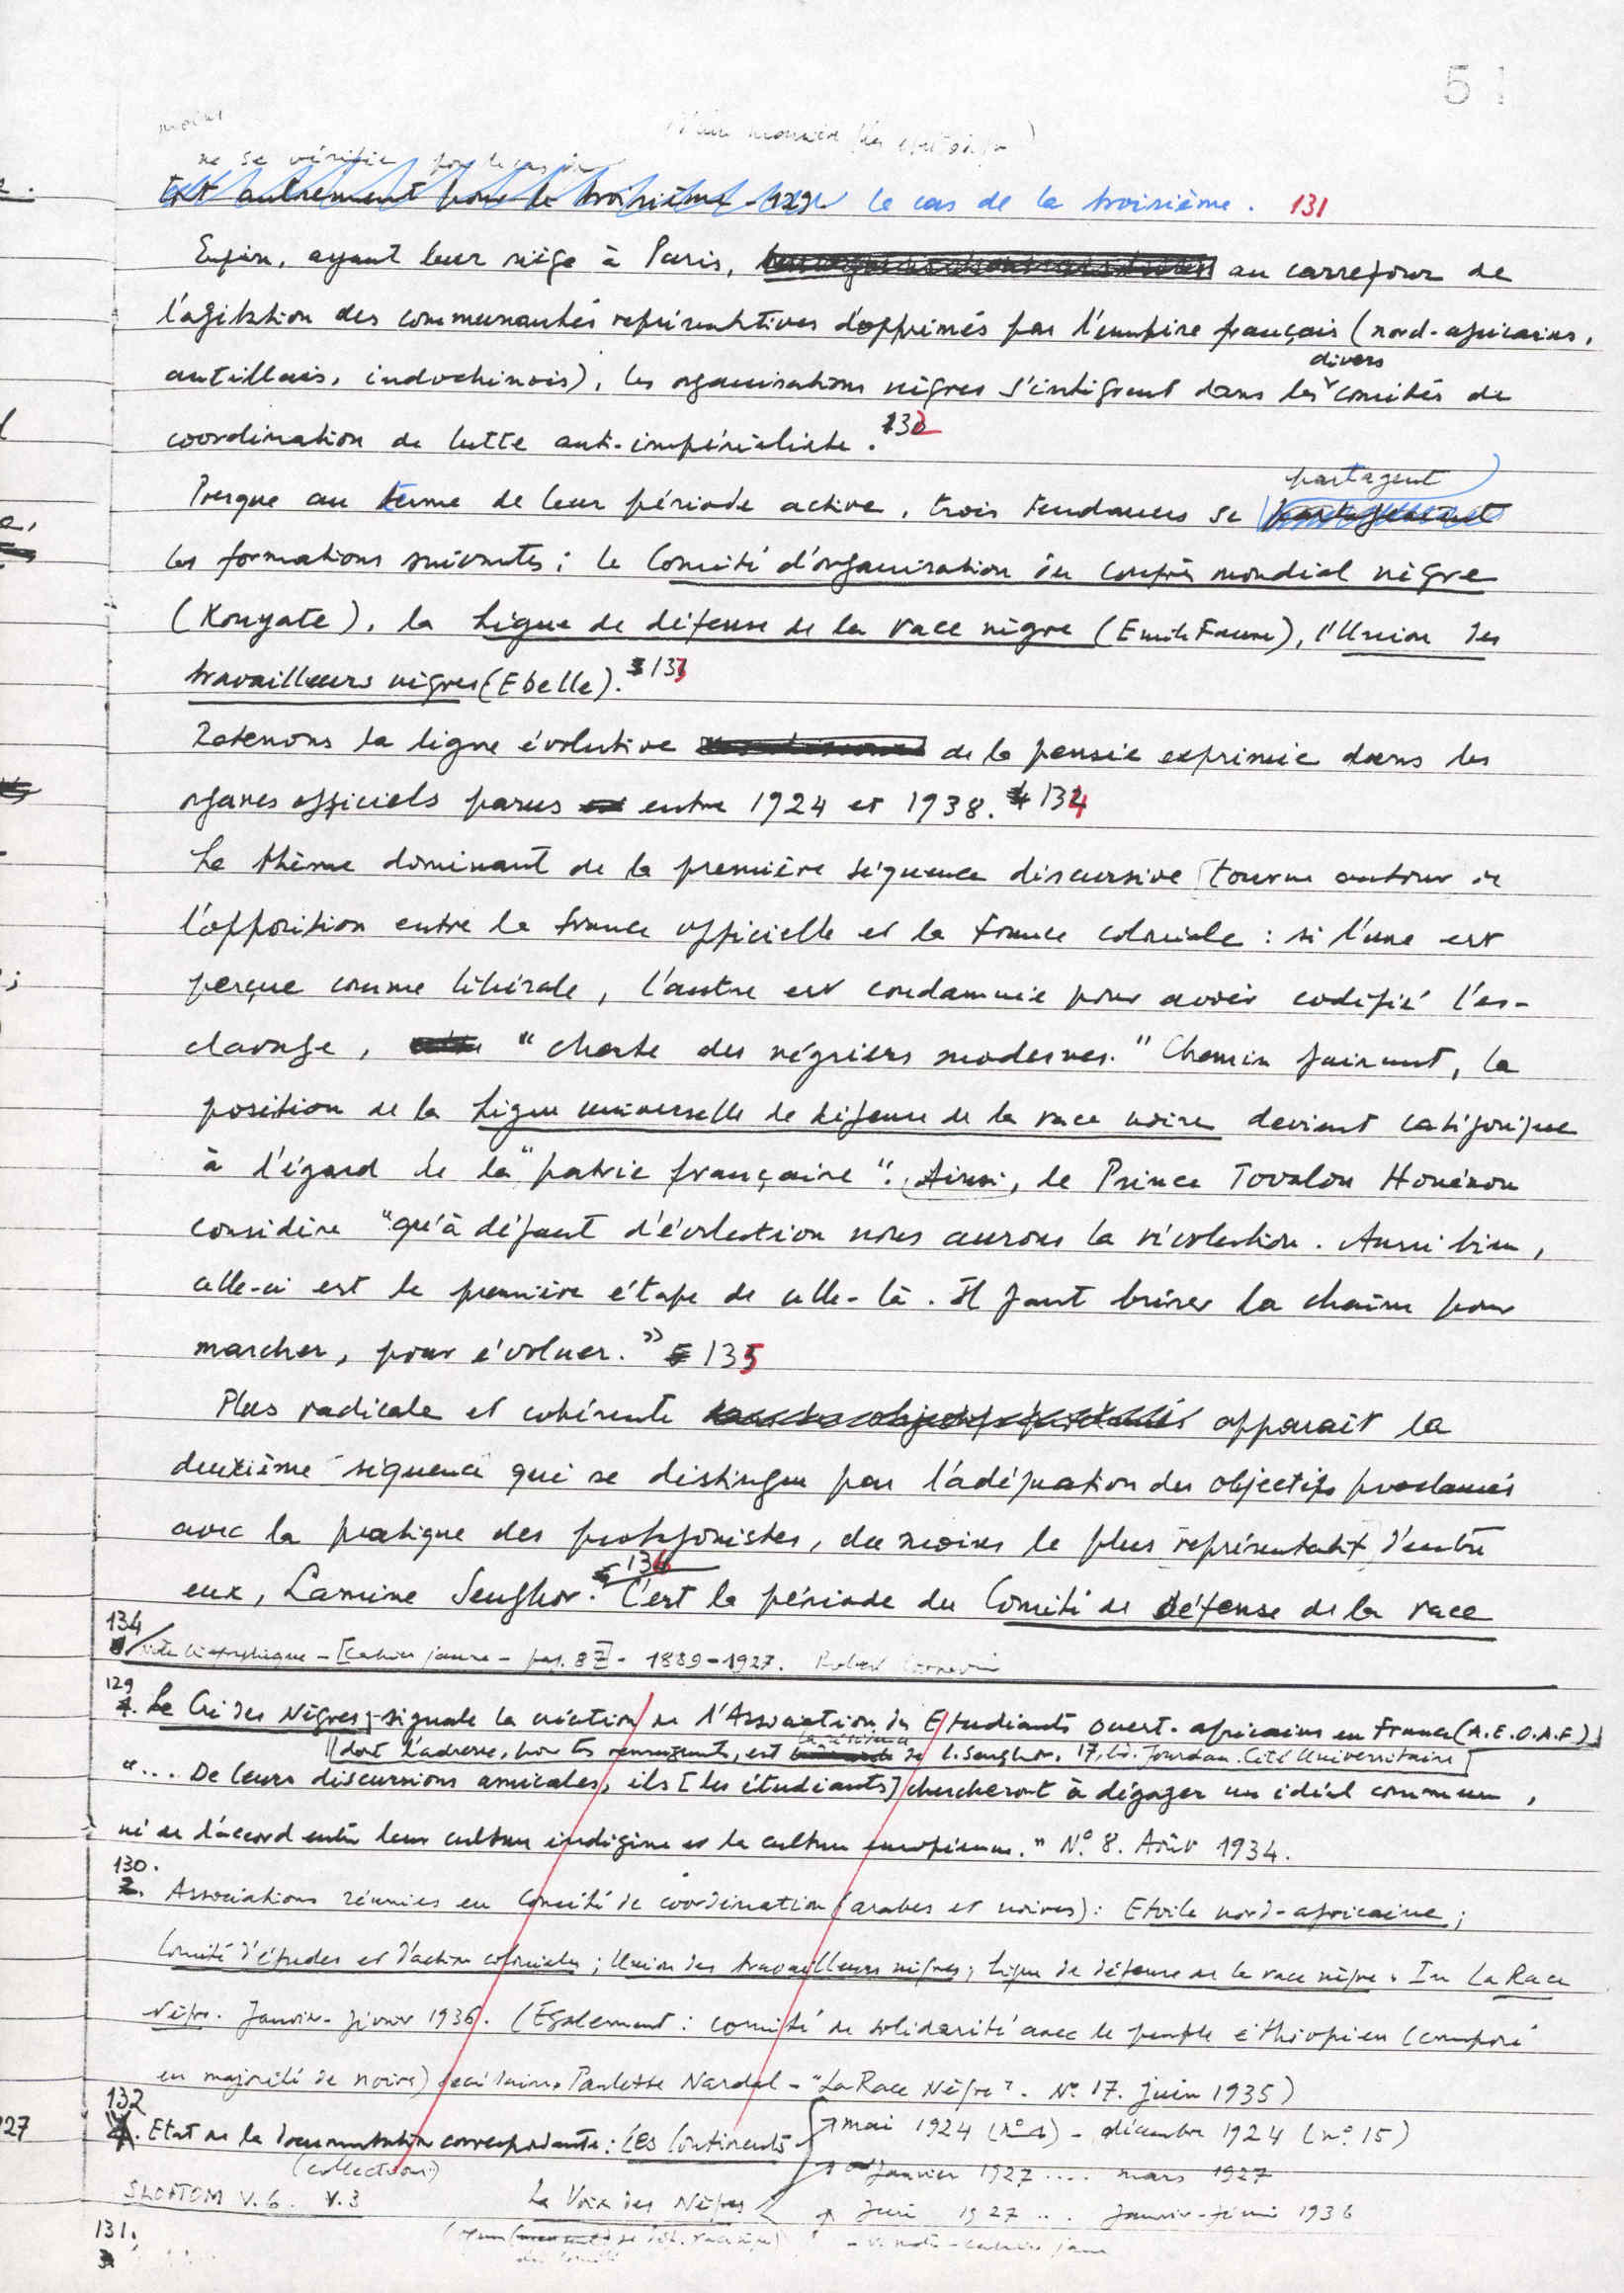 51
moins
ne se vérifie pour le cas de
tout autrement pour le troisième le cas de la troisième. 131
Enfin, ayant leur siège à Paris, au carrefour de
l'agitation des communautés représentatives d'opprimés par l'empire français (nord-africains,
divers
antillais, indochinois), les organisations nègres s'intègrent dans les comités de
coordination de lutte anti-impérialiste. 132
partagent
Presque au terme de leur période active, trois tendances se
les formations suivantes : le Comité d'organisation du congrès mondial nègre
(Kouyate), la Ligue de défense de la race nègre (Emile Faure), l'Union des
travailleurs nègres (Ebelle). 133
Retenons la ligne évolutive de la pensée exprimée dans les
organes officiels parus entre 1924 et 1938. 134
Le thème dominant de la première séquence discursive tourne autour de
l'opposition entre la France officielle et la France coloniale : si l'une est
perçue comme libérale, l'autre est condamnée pour avoir codifié l'es-
clavage, "charte des négriers modernes." Chemin faisant, la
position de la Ligue universelle de défense de la race noire devient catégorique
à l'égard de la "patrie française". Ainsi, le Prince Tovalou Houénou
considère "qu'à défaut d'évolution nous aurons la révolution. Aussi bien,
celle-ci est la première étape de celle-là. Il faut briser la chaîne pour
marcher, pour évoluer." 135
Plus radicale et cohérente apparaît la
deuxième séquence qui se distingue par l'adéquation des objectifs proclamés
avec la pratique des protagonistes, du moins le plus représentatif d'entre
136
eux, Lamine Senghor. C'est la période du Comité de défense de la race
134
Note biographique - [Cahier jaune - pag. 87] - 1889-1927. Robert Cornevin
129
Le Cri des Nègres, signale la création de l'Association des Etudiants ouest-africains en France (A.E.O.A.F)
dont l'adresse, pour tous renseignements, est de L. Senghor, 17, bd. Jourdan. Cité Universitaire]
"... De leurs discussions amicales, ils [les étudiants] chercheront à dégager un idéal commun,
né de l'accord entre leur culture indigène et la culture européenne." N° 8. Août 1934.
130.
2. Associations réunies en Comité de coordination (arabes et noires) : Etoile nord-africaine ;
Comité d'études et d'action coloniales ; Union des travailleurs nègres ; Ligue de défense de la race nègre. In La Race
Nègre. Janvier-février 1936. (Egalement : comité de solidarité avec le peuple éthiopien (composé
en majorité de noirs) secrétaire Paulette Nardal - "La Race Nègre". N° 17. Juin 1935)
132
4. Etat de la documentation correspondante : Les Continents mai 1924 (n° 1) - décembre 1924 (n° 15)
(collections) Janvier 1927 .... mars 1927
SLOTFOM V.6. V.3 La Voix des Nègres Juin 1927 ... Janvier-février 1936
131.
27